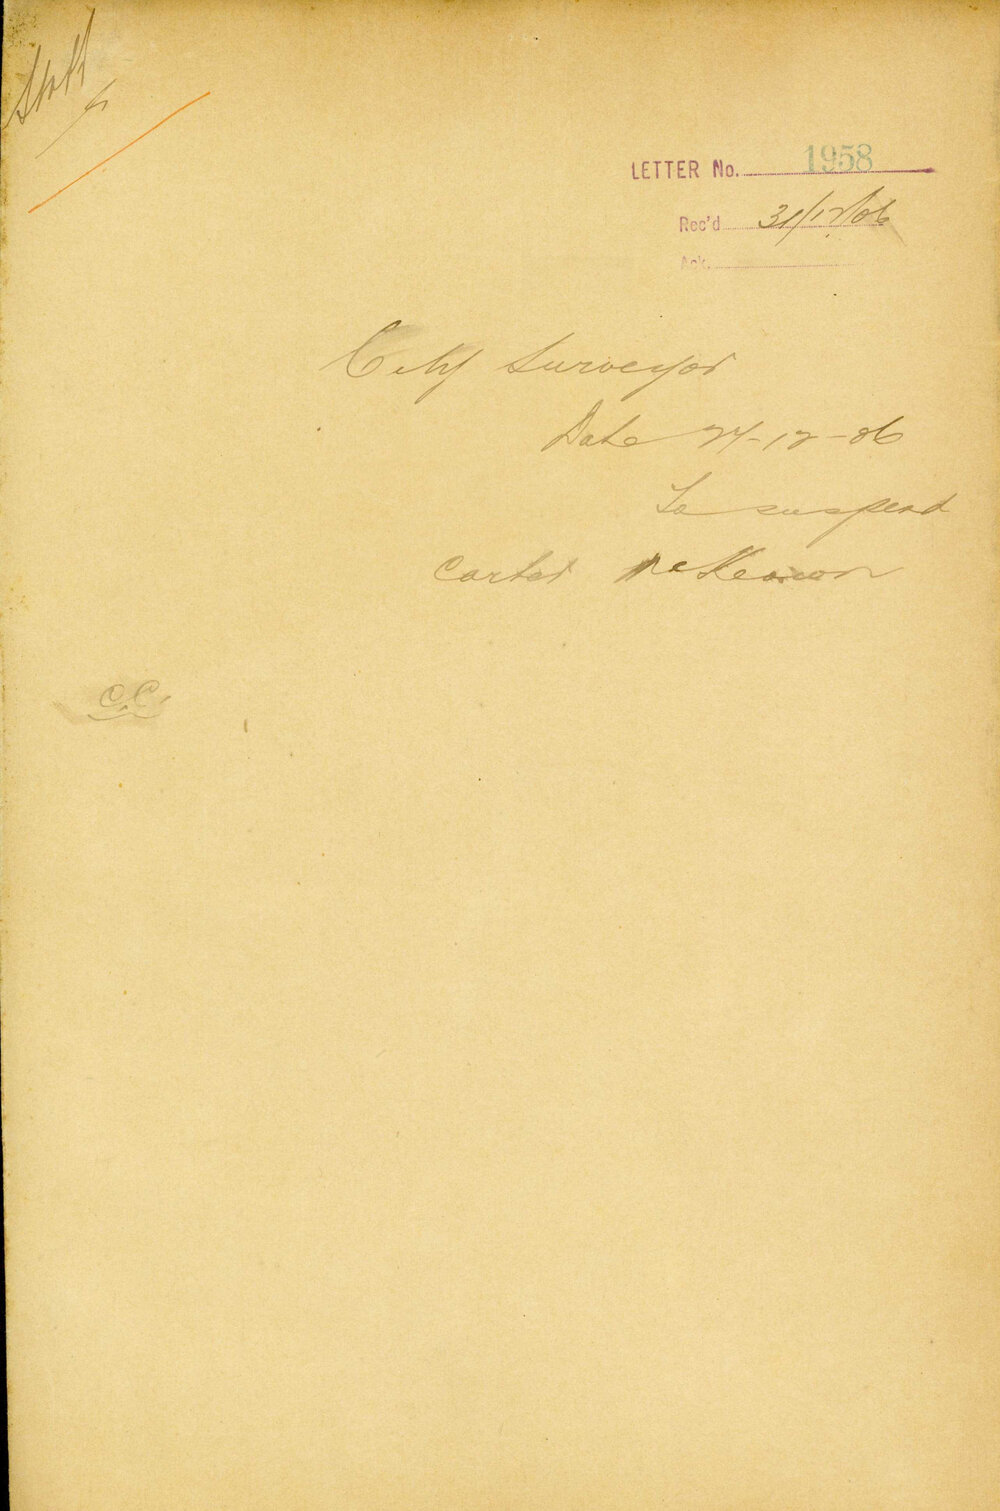 Staff
LETTER No. 1958
Rec'd 31/12/06
Ack.
City Surveyor
Date 27-12-06
To suspend
Carter McKeown
C.C.